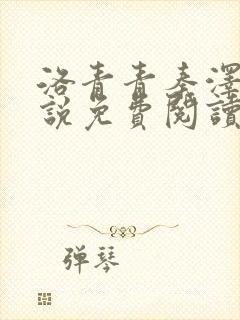 洛青青秦澤
說免費閱讀
弹琴